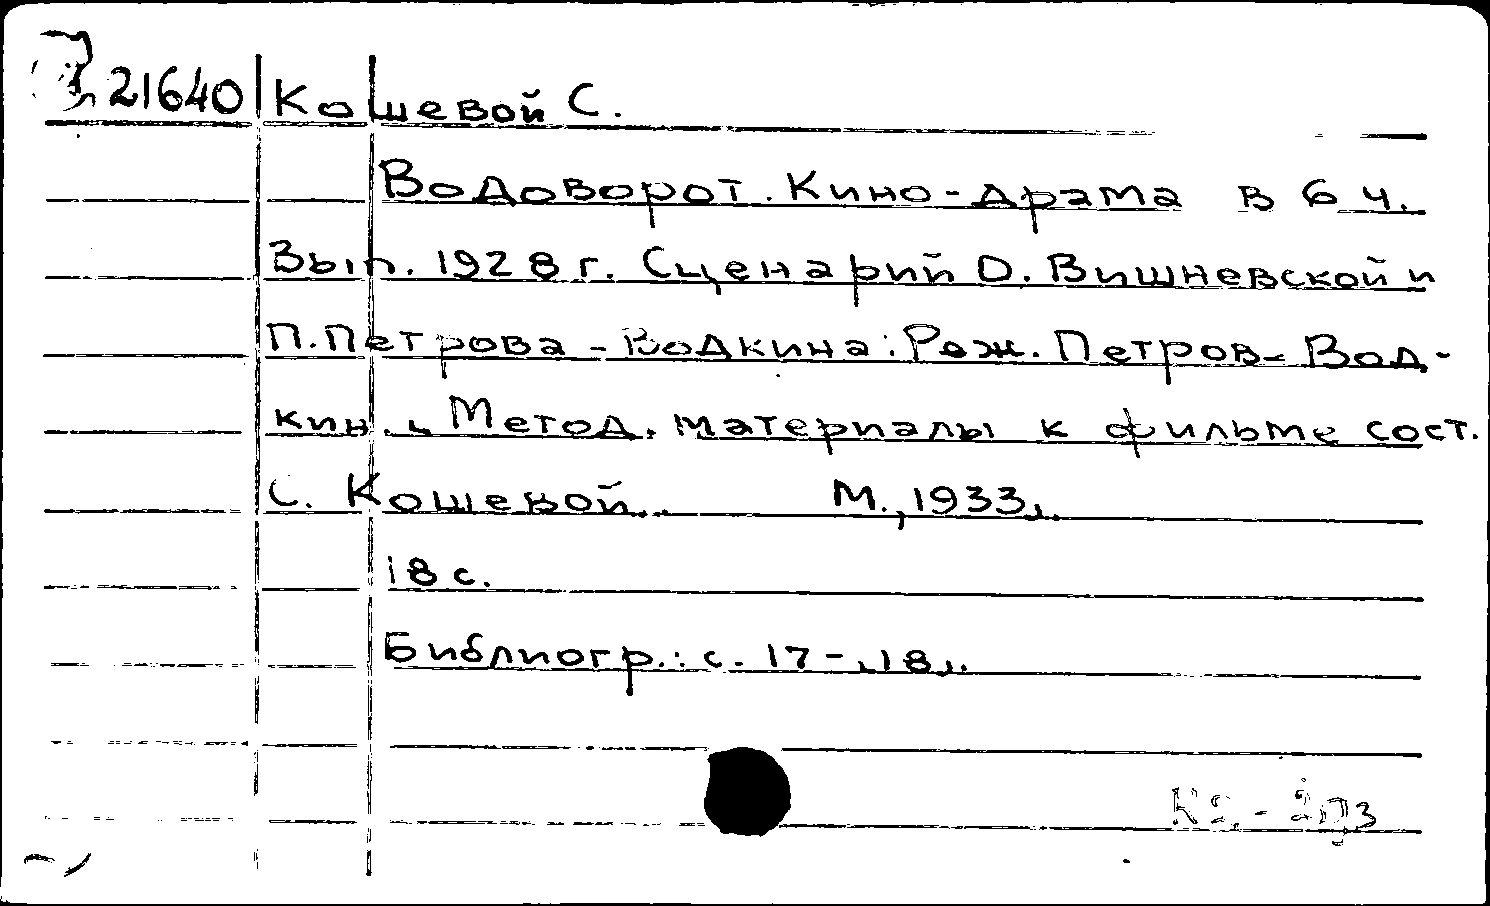 21640 Кошевой С.
Водоворот. Кино-драма в 6 ч.
Вып. 1928 г. Сценарий О. Вишневской и
П. Петрова-Водкина. Реж. Петров-Вод-
кин. Метод. материалы к фильме сост.
С. Кошевой. М., 1933.
18 с.
Библиогр.: с. 17-18.